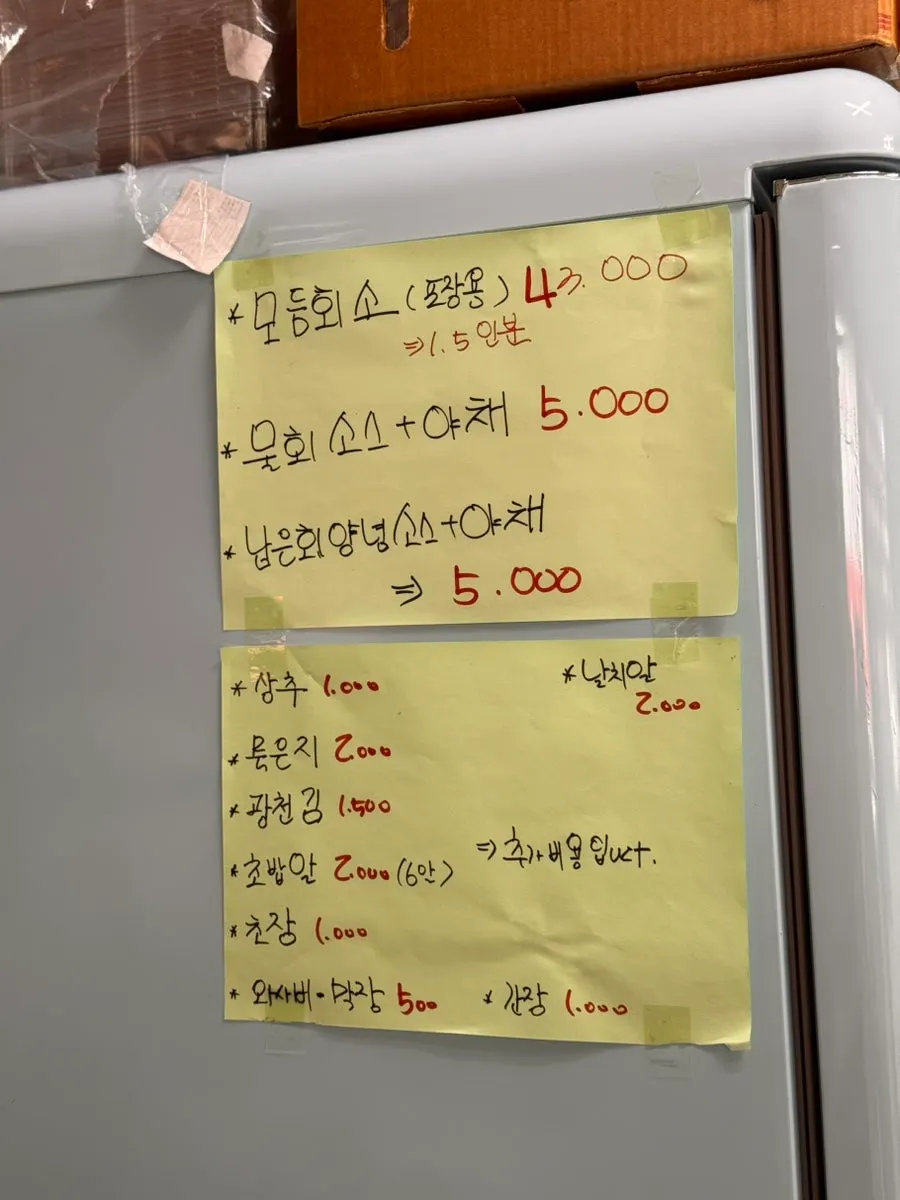 *모듬회 소 (포장용) 43.000
⇒ 1.5인분
* 물회 소스+야채 5.000
* 남은회양념소스+야채
⇒ 5.000
* 상추 1.000
* 날치알
2.000
* 묵은지 2.000
* 광천김 1.500
* 초밥알 2.000 (6알)
⇒ 추가비용입니다.
* 초장 1.000
* 와사비·막장 500 * 간장 1.000